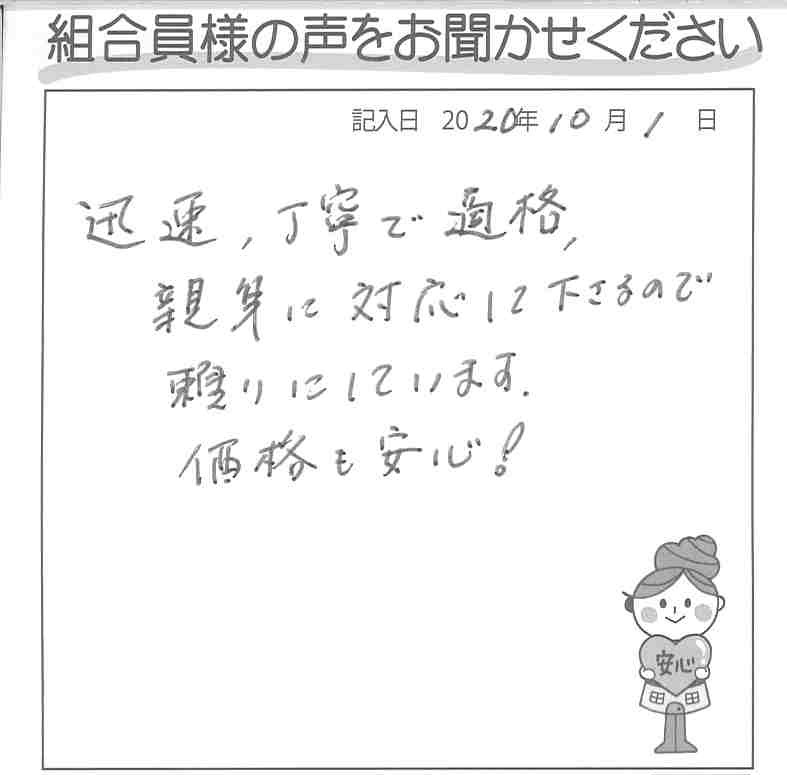 組合員様の声をお聞かせください
記入日 2020年10月1日
迅速,丁寧で適格,
親身に対応して下さるので
頼りにしています.
価格も安心!
安心